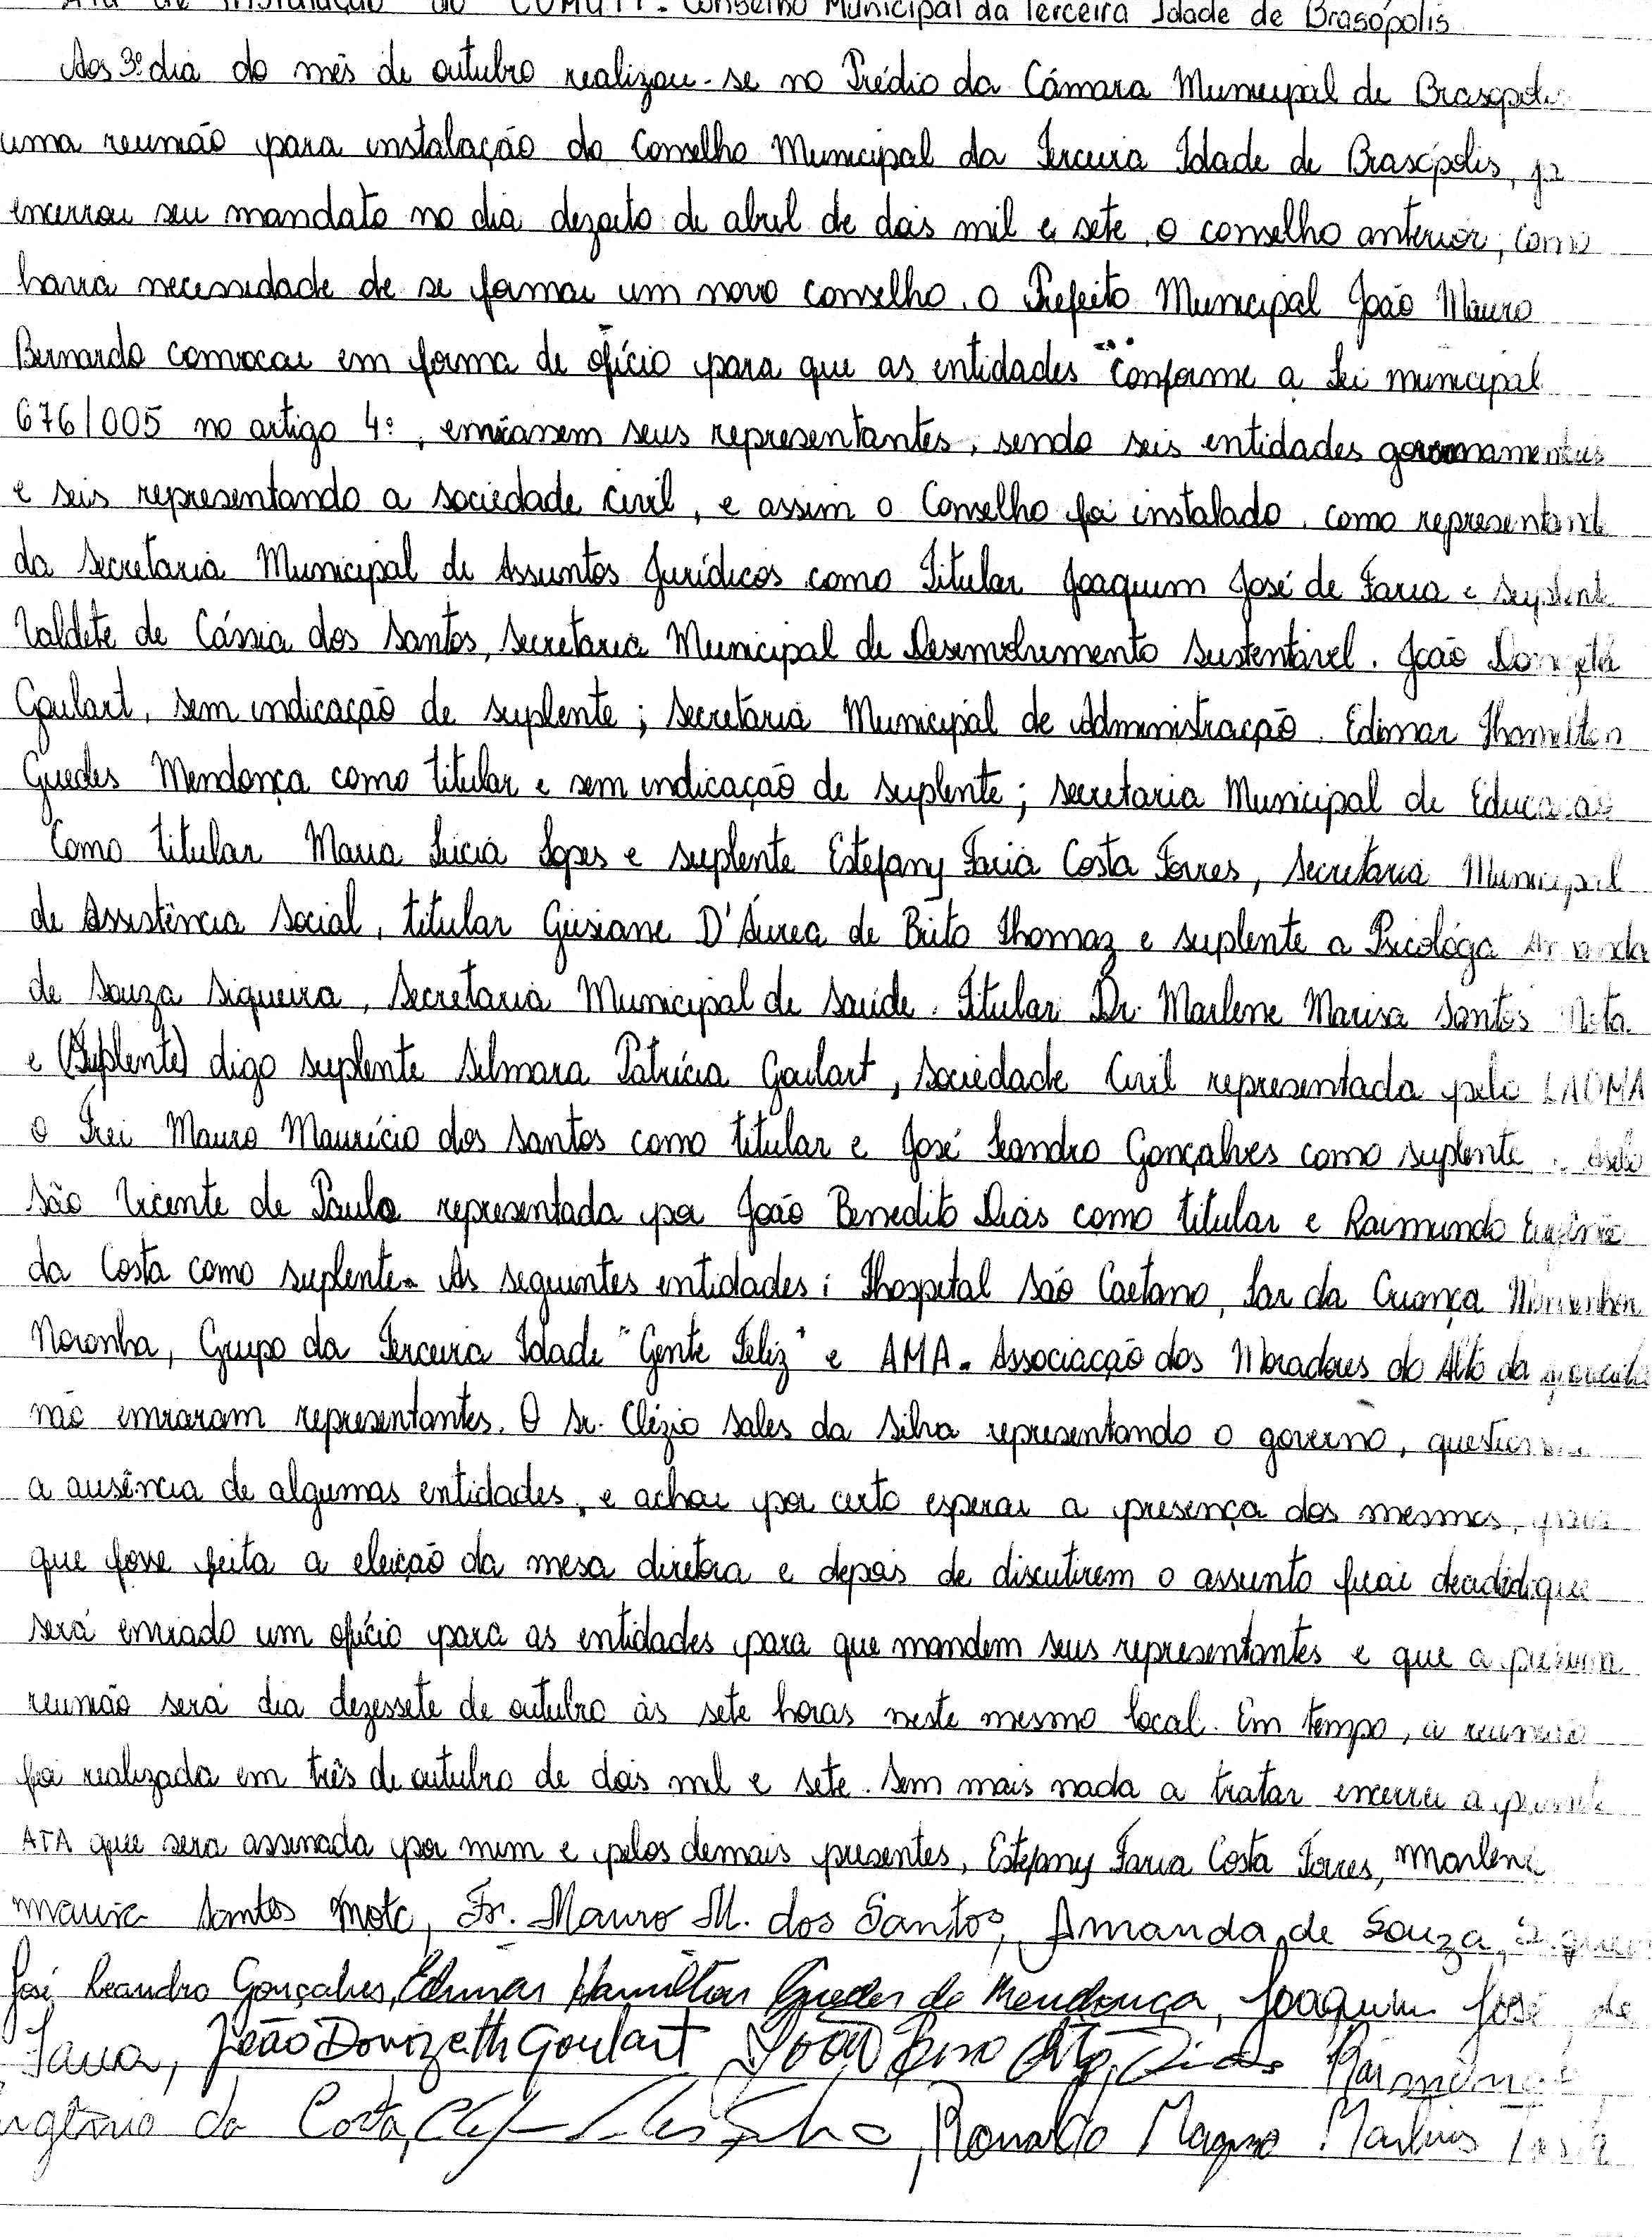 Ata de Instalação do COMUTI - Conselho Municipal da Terceira Idade de Brasópolis
Aos 3º dia do mês de outubro realizou-se no Prédio da Câmara Municipal de Brasópolis
uma reunião para instalação do Conselho Municipal da Terceira Idade de Brasópolis, já
encerrou seu mandato no dia dezoito de abril de dois mil e sete, o conselho anterior, como
havia necessidade de se formar um novo conselho, o Prefeito Municipal João Mauro
Bernardo convocou em forma de ofício para que as entidades conforme a Lei municipal
676/005 no artigo 4º, enviarem seus representantes, sendo seis entidades governamentais
e seis representando a sociedade civil, e assim o Conselho foi instalado, como representante
da Secretaria Municipal de Assuntos Jurídicos como Titular Joaquim José de Faria e suplente
Valdete de Cássia dos Santos, Secretaria Municipal de Desenvolvimento Sustentável. João Donizeti
Goulart, sem indicação de suplente; Secretaria Municipal de Administração. Edimar Hamilton
Guedes Mendonça como titular e sem indicação de suplente; secretaria Municipal de Educação
Como titular Maria Lúcia Lopes e suplente Estefany Faria Costa Torres, Secretaria Municipal
de Assistência Social, titular Gisiane D'Áurea de Brito Thomaz e suplente a Psicológa Amanda
de Souza Siqueira, Secretaria Municipal de Saúde. Titular Dr. Marlene Marisa Santos Mota
e (Suplente) digo suplente Silmara Patrícia Goulart, Sociedade Civil representada pelo LAOMA
o Frei Mauro Maurício dos Santos como titular e José Leandro Gonçalves como suplente. Asilo
São Vicente de Paulo representada por João Benedito Dias como titular e Raimundo Eugênio
da Costa como suplente. As seguintes entidades: Hospital São Caetano, Lar da Criança Monsenhor
Noronha, Grupo da Terceira Idade "Gente Feliz" e AMA - Associação dos Moradores do Alto da
não enviaram representantes. O Sr. Clézio Sales da Silva representando o governo, questionou
a ausência de algumas entidades, e achou por certo esperar a presença dos mesmos, para
que fosse feita a eleição da mesa diretora e depois de discutirem o assunto ficou decidido que
será enviado um ofício para as entidades para que mandem seus representantes e que a próxima
reunião será dia dezessete de outubro às sete horas neste mesmo local. Em tempo, a reunião
foi realizada em três de outubro de dois mil e sete. Sem mais nada a tratar encerro a presente
ATA que sera assinada por mim e pelos demais presentes, Estefany Faria Costa Torres, Marlene
Marisa Santos Mota, Fr. Mauro M. dos Santos, Amanda de Souza Siqueira
José Leandro Gonçalves, Edimar Hamilton Guedes de Mendonça, Joaquim José de
Faria, João Donizetti Goulart João Dias Raimundo
Eugênio da Costa, Ronaldo Magno Martins